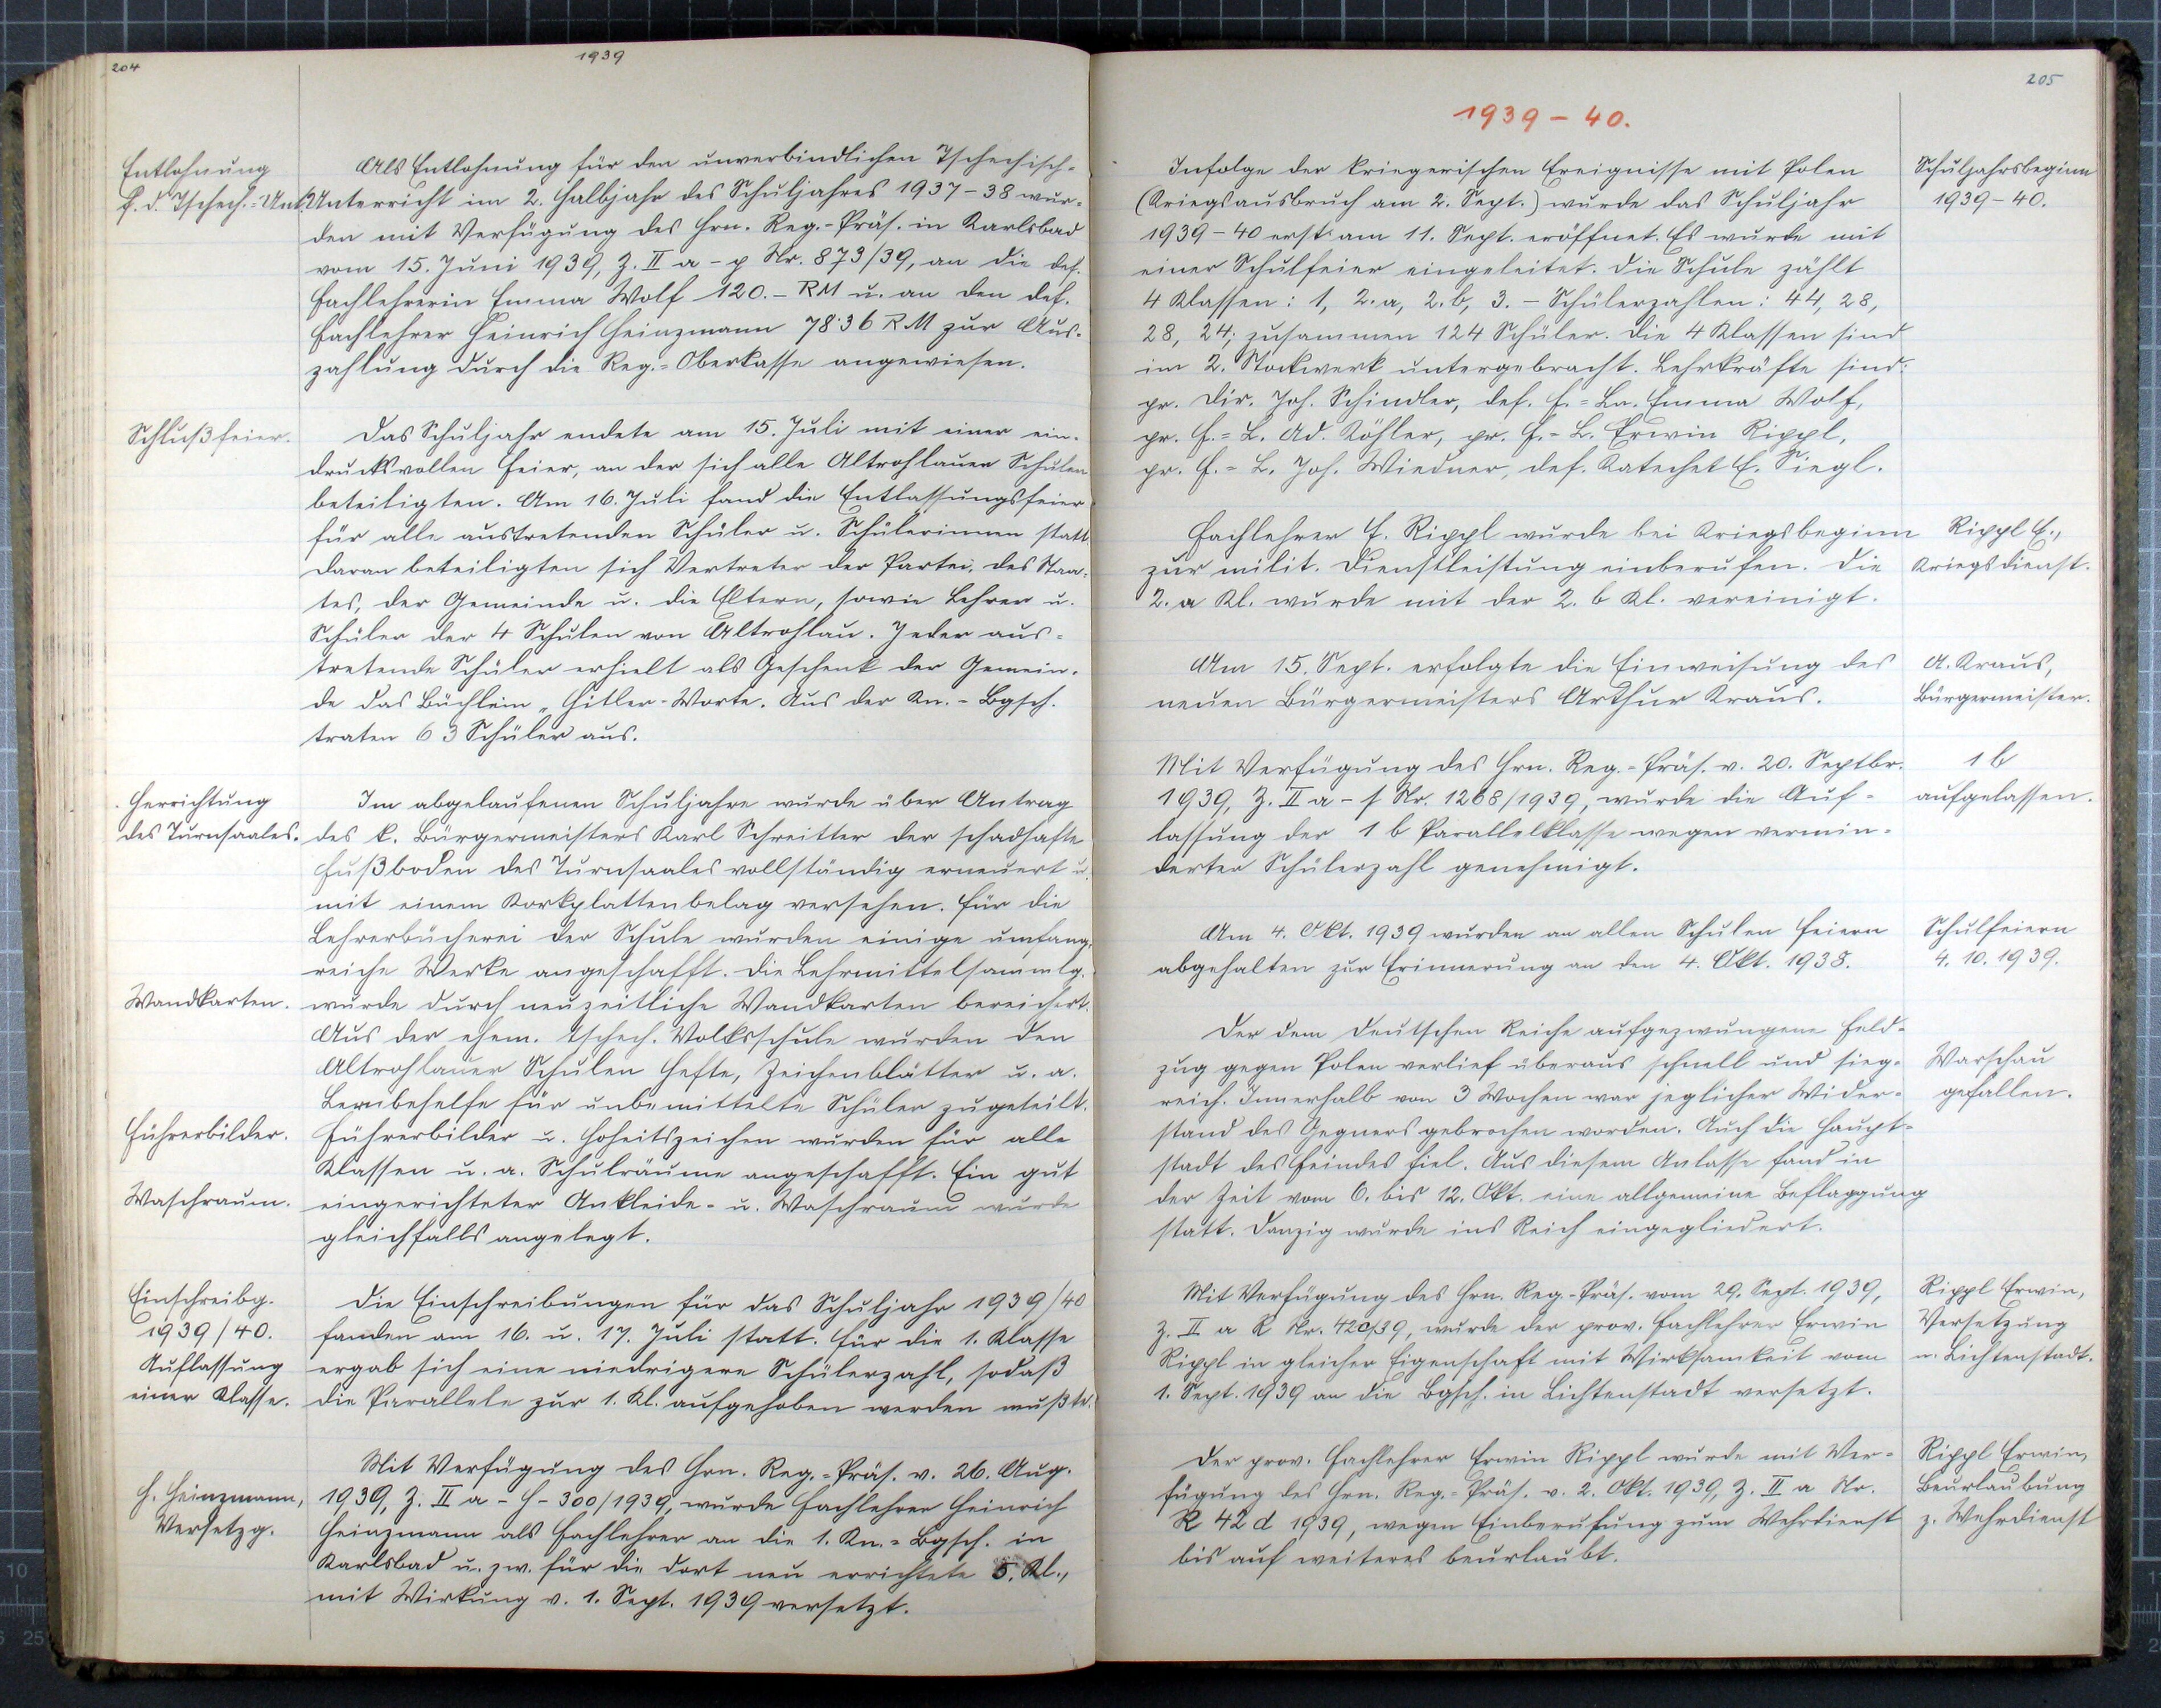 204
1939
Entlohnung
f. d. Tschech.-Unt.
Als Entlohnung für den unverbindlichen Tschechisch-
Unterricht im 2. Halbjahr des Schuljahres 1937-38 wur-
den mit Verfügung des Hrn. Reg.-Präs. in Karlsbad
vom 15. Juni 1939, Z. II a - p Nr. 873/39, an die def.
Fachlehrerin Emma Wolf 120.- RM u. an den def.
Fachlehrer Heinrich Heinzmann 78·36 RM zur Aus-
zahlung durch die Reg.-Oberkasse angewiesen.
Schlußfeier.
Das Schuljahr endete am 15. Juli mit einer ein-
drucksvollen Feier, an der sich alle Altrohlauer Schulen
beteiligten. Am 16. Juli fand die Entlassungsfeier
für alle austretenden Schüler u. Schülerinnen statt.
Daran beteiligten sich Vertreter der Partei, des Staa-
tes, der Gemeinde u. die Eltern, sowie Lehrer u.
Schüler der 4 Schulen von Altrohlau. Jeder aus-
tretende Schüler erhielt als Geschenk der Gemein-
de das Büchlein „Hitler-Worte. Aus der Kn.-Bgsch.
traten 63 Schüler aus.
Herrichtung
des Turnsaales.
Im abgelaufenen Schuljahre wurde über Antrag
des k. Bürgermeisters Karl Schreitter der schadhafte
Fußboden des Turnsaales vollständig erneuert u.
mit einem Korkplattenbelag versehen. Für die
Lehrerbücherei der Schule wurden einige umfang-
reiche Werke angeschafft. Die Lehrmittelsammlg.
Wandkarten.
wurde durch neuzeitliche Wandkarten bereichert.
Aus der ehem. tschech. Volksschule wurden den
Altrohlauer Schulen Hefte, Zeichenblätter u. a.
Lernbehelfe für unbemittelte Schüler zugeteilt.
Führerbilder.
Führerbilder u. Hoheitszeichen wurden für alle
Klassen u. a. Schulräume angeschafft. Ein gut
Waschraum.
eingerichteter Ankleide- u. Waschraum wurde
gleichfalls angelegt.
Einschreibg.
1939/40.
Auflassung
einer Klasse.
Die Einschreibungen für das Schuljahr 1939/40
fanden am 16. u. 17. Juli statt. Für die 1. Klasse
ergab sich eine niedrigere Schülerzahl, sodaß
die Parallele zur 1. Kl. aufgehoben werden mußte.
H. Heinzmann,
Versetzg.
Mit Verfügung des Hrn. Reg.-Präs. v. 26. Aug.
1939, Z. II a - H - 300/1939, wurde Fachlehrer Heinrich
Heinzmann als Fachlehrer an die 1. Kn.-Bgsch. in
Karlsbad u. zw. für die dort neu errichtete 5. Kl.,
mit Wirkung v. 1. Sept. 1939 versetzt.
205
1939 - 40.
Infolge der kriegerischen Ereignisse mit Polen
(Kriegsausbruch am 2. Sept.) wurde das Schuljahr
1939-40 erst am 11. Sept. eröffnet. Es wurde mit
einer Schulfeier eingeleitet. Die Schule zählt
4 Klassen: 1, 2.a, 2.b, 3. - Schülerzahlen: 44, 28,
28, 24; zusammen 124 Schüler. Die 4 Klassen sind
im 2. Stockwerk untergebracht. Lehrkräfte sind:
pr. Dir. Joh. Schindler, def. F.-Ln. Emma Wolf,
pr. F.-L. Ad. Köhler, pr. F.-L. Erwin Rippl,
pr. F.-L. Joh. Wiedner, def. Katechet E. Siegl.
Schuljahrsbeginn
1939-40.
Fachlehrer E. Rippl wurde bei Kriegsbeginn
zur milit. Dienstleistung einberufen. Die
2. a Kl. wurde mit der 2. b Kl. vereinigt.
Rippl E.,
Kriegsdienst.
Am 15. Sept. erfolgte die Einweisung des
neuen Bürgermeisters Arthur Kraus.
A. Kraus,
Bürgermeister.
Mit Verfügung des Hrn. Reg.-Präs. v. 20. Septbr.
1939, Z. II a - f Nr. 1268/1939, wurde die Auf-
lassung der 1 b Parallelklasse wegen vermin-
derter Schülerzahl genehmigt.
1 b
aufgelassen.
Am 4. Okt. 1939 wurden an allen Schulen Feiern
abgehalten zur Erinnerung an den 4. Okt. 1938.
Schulfeiern
4. 10. 1939.
Der dem Deutschen Reiche aufgezwungene Feld-
zug gegen Polen verlief überaus schnell und sieg-
reich. Innerhalb von 3 Wochen war jeglicher Wider-
stand des Gegners gebrochen worden. Auch die Haupt-
stadt des Feindes fiel. Aus diesem Anlasse fand in
der Zeit vom 6. bis 12. Okt. eine allgemeine Beflaggung
statt. Danzig wurde ins Reich eingegliedert.
Warschau
gefallen.
Mit Verfügung des Hrn. Reg.-Präs. vom 29. Sept. 1939,
Z. II a R Nr. 42c/39, wurde der prov. Fachlehrer Erwin
Rippl in gleicher Eigenschaft mit Wirksamkeit vom
1. Sept. 1939 an die Bgsch. in Lichtenstadt versetzt.
Rippl Erwin,
Versetzung
n. Lichtenstadt.
Der prov. Fachlehrer Erwin Rippl wurde mit Ver-
fügung des Hrn. Reg.-Präs. v. 2. Okt. 1939, Z. II a Nr.
R 42 d 1939, wegen Einberufung zum Wehrdienst
bis auf weiteres beurlaubt.
Rippl Erwin,
Beurlaubung
z. Wehrdienst